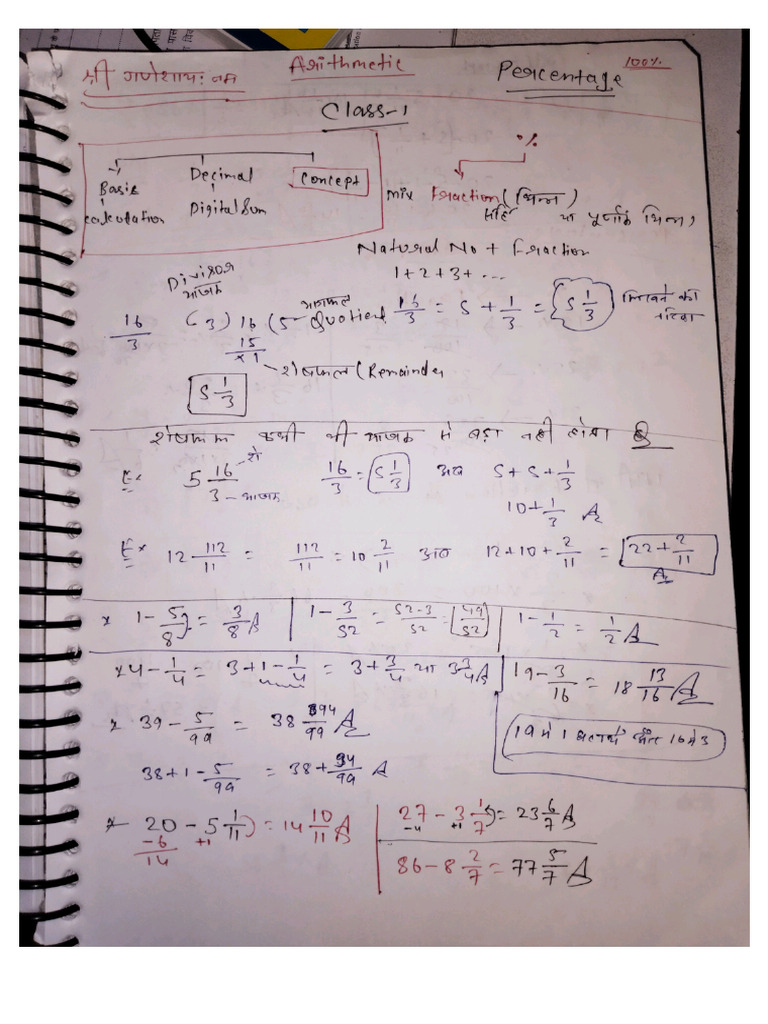 श्री गणेशाय: नम Arithmetic Percentage 100%
Class-1
%
Basic calculation Decimal Digital Sum Concept
mix Fraction (भिन्न) या पूर्णांक भिन्न,
Natural No + Fraction
1+2+3+ ...
Divisor भाजक
16/3 (3) 16 (5 - भागफल Quotient 16/3 = 5 + 1/3 = 5 1/3 लिखने का तरीका
15
×1 - शेषफल (Remainder
5 1/3
शेषफल कभी भी भाजक से बड़ा नही होता है
Ex 5 16/3 - शे - भाजक 16/3 = 5 1/3 अब 5 + 5 + 1/3
10 + 1/3 A
Ex 12 - 112/11 = 112/11 = 10 2/11 अब 12 + 10 + 2/11 = 22 + 2/11 A
× 1 - 5/8 = 3/8 A 1 - 3/52 = 52-3/52 = 49/52 1 - 1/2 = 1/2 A
×4 - 1/4 = 3 + 1 - 1/4 = 3 + 3/4 या 3 3/4 A 19 - 3/16 = 18 13/16 A
× 39 - 5/99 = 38 94/99 A
19 मे 1 घटायें और 16 मे 3
38 + 1 - 5/99 = 38 + 94/99 A
× 20 - 5 1/11) = 14 10/11 A 27 - 3 1/7) = 23 6/7 A
-6 +1 -4 +1
14
86 - 8 2/7 = 77 5/7 A